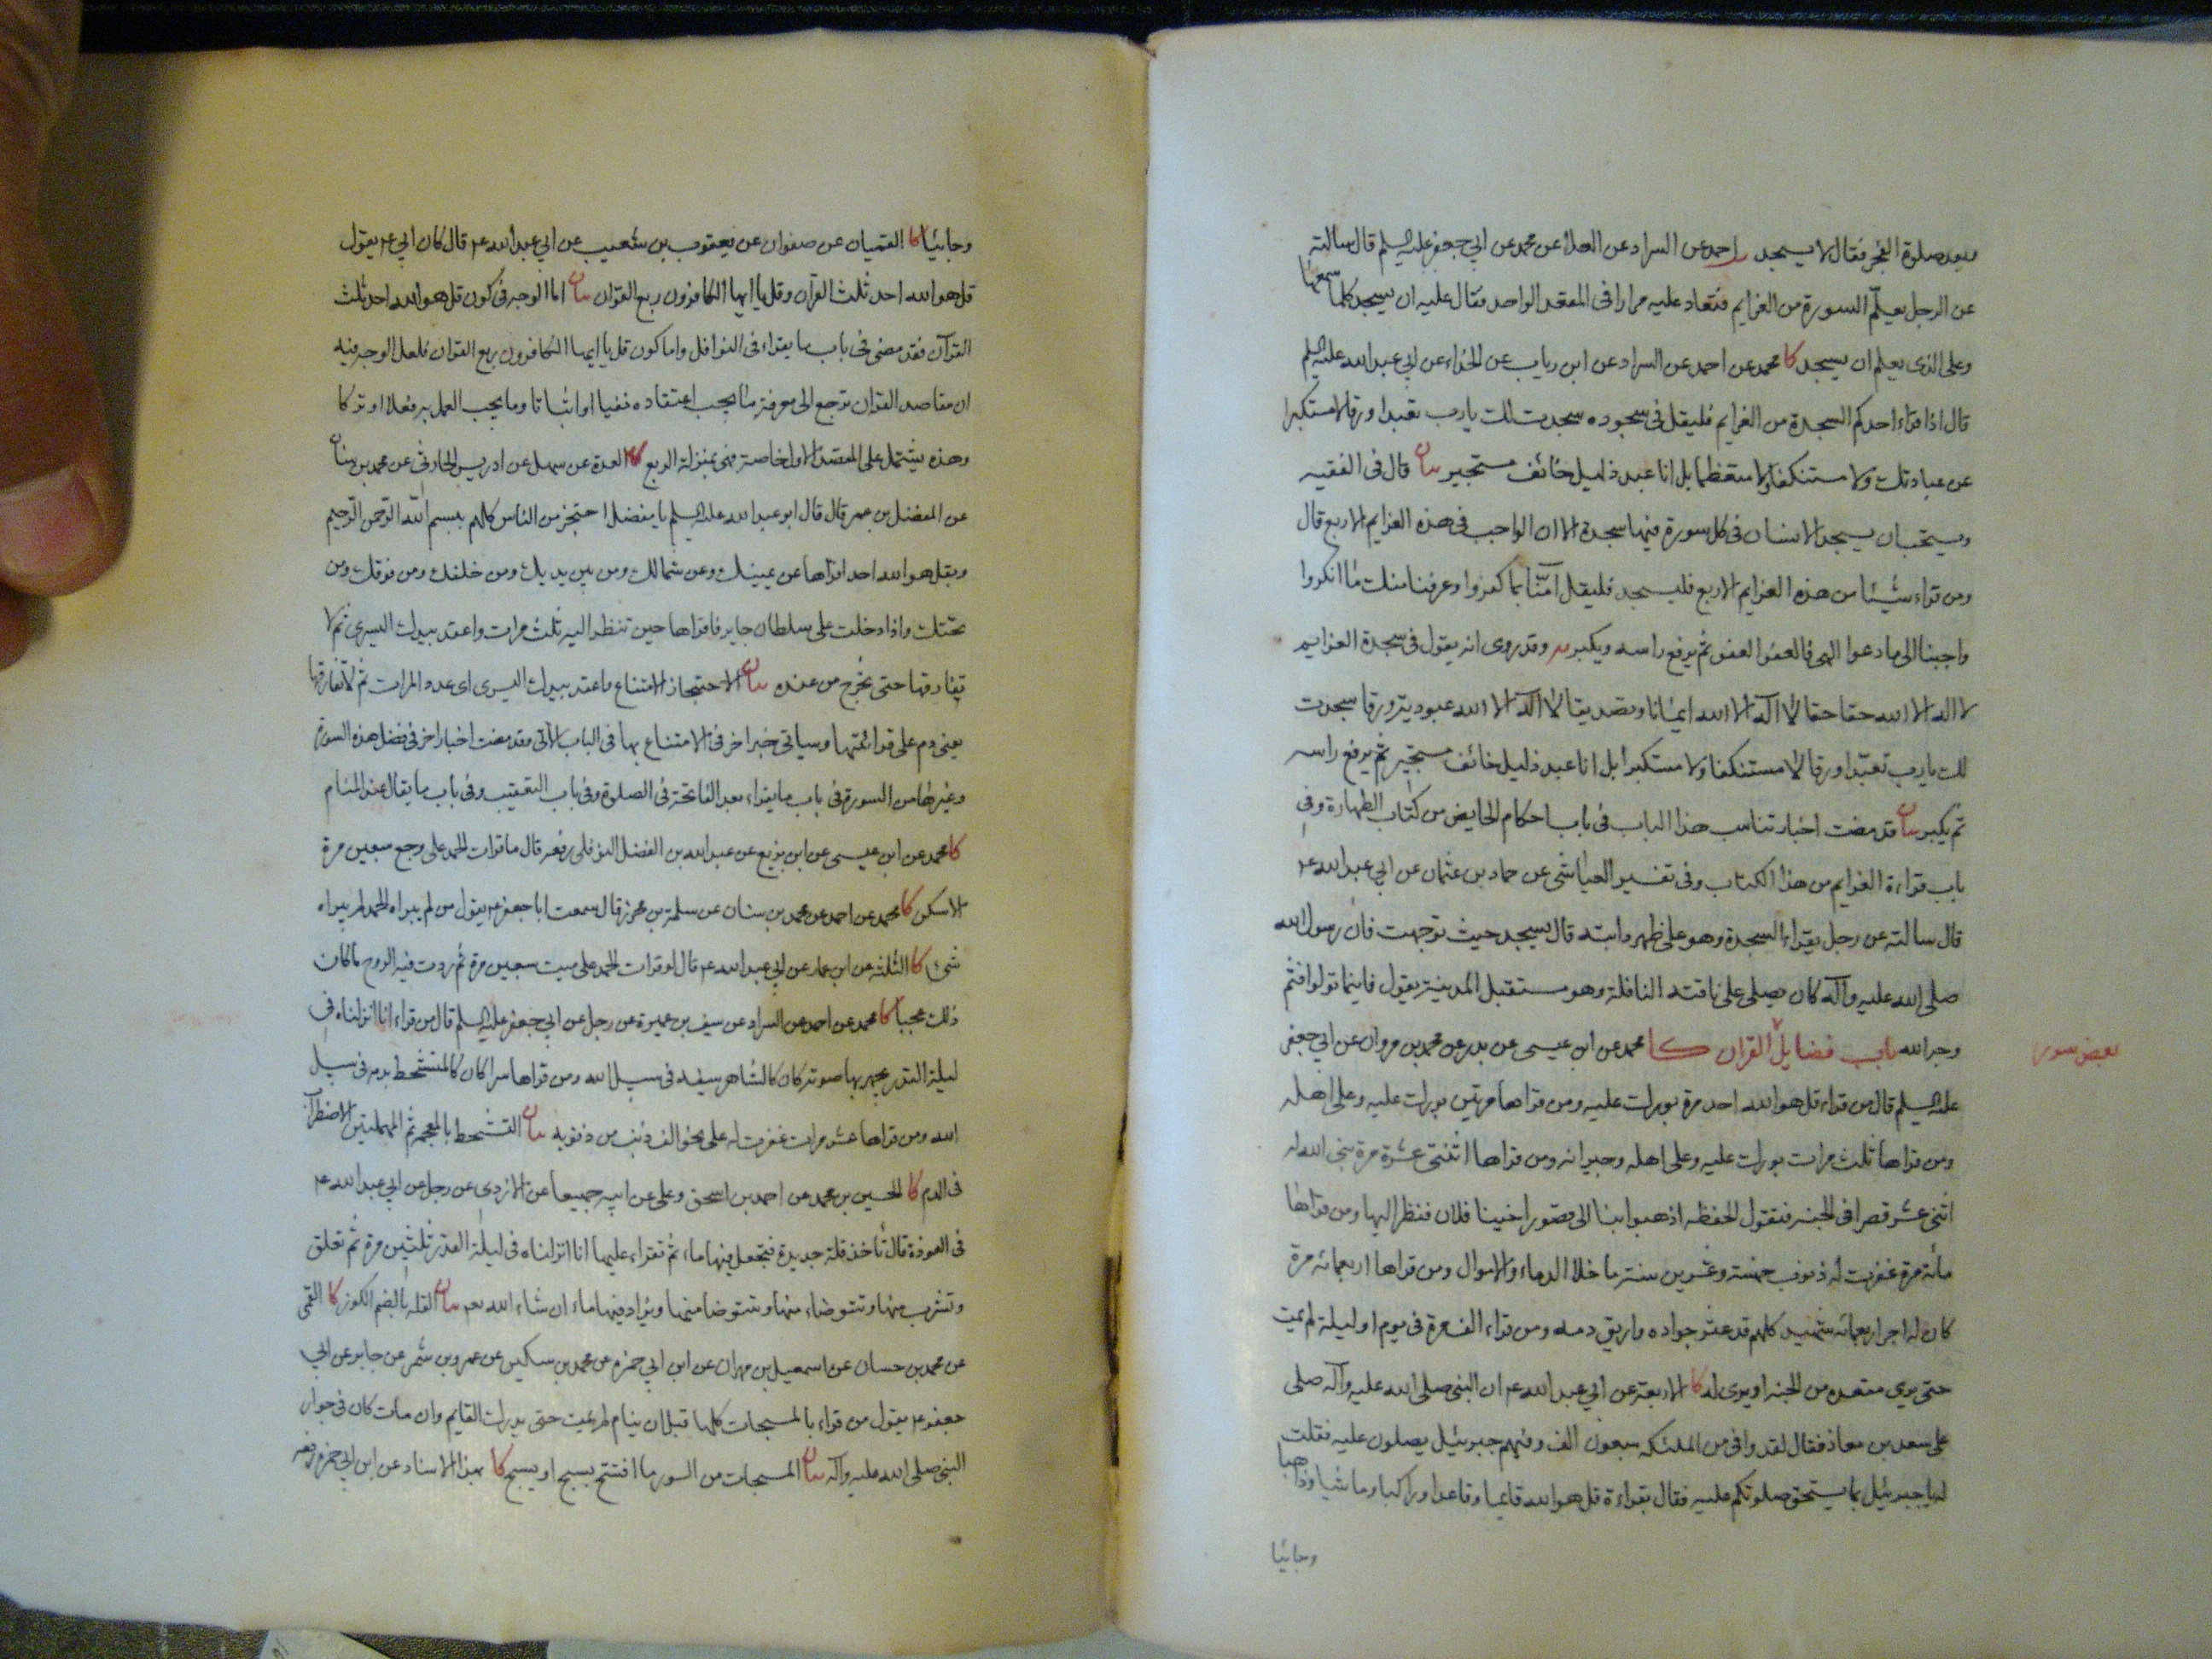 بعد صلوة الفجر فقال لا يسجد احمد عن السراد عن العلا عن محمد عن ابي جعفر عليه السلم قال سالته
عن الرجل يعلم السورة من العزايم فتعاد عليه مرارا في المقعد الواحد فقال عليه ان يسجد كلما سمعها
وعلى الذى يعلم ان يسجد كا محمد عن احمد عن السراد عن ابن رياب عن الحذاء عن ابي عبد الله عليه السلم
قال اذا قراء احدكم السجدة من العزايم فليقل في سجوده سجدت لك يارب تعبدا ورقا لا مستكبرا
عن عبادتك ولا مستنكفا ولا متعظما بل انا عبد ذليل خائف مستجير بيان قال في الفقيه
ويستحب ان يسجد الانسان في كل سورة فيها سجدة الا ان الواجب في هذه العزايم الاربع قال
ومن قراء شيئا من هذه العزايم الاربع فليسجد فليقل آمنا بما كفروا وعرفنا منك ما انكروا
واجبنا الى ما دعوا الهى فالعفو العفو ثم يرفع راسه ويكبر وقد روى انه يقول في سجدة العزايم
لا اله الا الله حقا حقا لا اله الا الله ايمانا وتصديقا لا اله الا الله عبودية ورقا سجدت
لك يارب تعبدا ورقا لا مستنكفا ولا مستكبرا بل انا عبد ذليل خائف مستجير ثم يرفع راسه
ثم يكبر بيان قد مضت اخبار تناسب هذا الباب في باب احكام الحايض من كتاب الطهارة وفي
باب قراءة العزايم من هذا الكتاب وفي تفسير العياشى عن حماد بن عثمان عن ابي عبد الله ع
قال سالته عن رجل يقراء السجدة وهو على ظهر دابته قال يسجد حيث توجهت فان رسول الله
صلى الله عليه وآله كان يصلى على ناقته النافلة وهو مستقبل المدينة يقول فاينما تولوا فثم
وجه الله باب فضايل القران كا محمد عن ابن عيسى عن بدر عن محمد بن مروان عن ابي جعفر
بعض سور
عليه السلم قال من قراء قل هو الله احد مرة بورك عليه ومن قراها مرتين بورك عليه وعلى اهله
ومن قراها ثلث مرات بورك عليه وعلى اهله وجيرانه ومن قراها اثنتى عشرة مرة بنى الله له
اثنى عشر قصرا في الجنة فتقول الحفظه اذهبوا بنا الى قصور اخينا فلان فننظر اليها ومن قراها
مائة مرة غفرت له ذنوب خمسة وعشرين سنة ما خلا الدماء والاموال ومن قراها اربعمائه مرة
كان له اجر اربعمائه شهيد كلهم قد عقر جواده واريق دمه ومن قراء الف مرة في يوم او ليلة لم يمت
حتى يرى مقعده من الجنه او يرى له كا الاربعة عن ابي عبد الله ع ان النبى صلى الله عليه وآله صلى
على سعد بن معاذ فقال لقد وافى من الملئكه سبعون الف وفيهم جبرئيل يصلون عليه فقلت
له يا جبرئيل بما يستحق صلوتكم عليه فقال بقراءة قل هو الله قايما وقاعدا وراكبا وماشيا وذاهبا
وجائيا
وجائيا كا القميان عن صفوان عن يعقوب بن شعيب عن ابي عبد الله ع قال كان ابي ع يقول
قل هو الله احد ثلث القرآن وقل يا ايها الكافرون ربع القرآن بيان اما الوجه في كون قل هو الله احد ثلث
القرآن فقد مضى في باب ما يقراء في النوافل واما كون قل يا ايها الكافرون ربع القران فلعل الوجه فيه
ان مقاصد القران ترجع الى معرفة ما يجب اعتقاده نفيا او اثباتا وما يجب العمل به فعلا او تركا
وهذه يشتمل على المقصد الاول خاصة فهى بمنزلة الربع كا العدة عن سهل عن ادريس الحارثى عن محمد بن سنان
عن المفضل بن عمر قال قال ابو عبد الله عليه السلم يا مفضل احتجز من الناس كلهم ببسم الله الرحمن الرحيم
وبقل هو الله احد اقراها عن يمينك وعن شمالك ومن بين يديك ومن خلفك ومن فوقك ومن
تحتك واذا دخلت على سلطان جاير فاقراها حين تنظر اليه ثلث مرات واعقد بيدك اليسرى ثم لا
تفارقها حتى تخرج من عنده بيان الاحتجاز الامتناع واعقد بيدك اليسرى اى عدد المرات ثم لا تفارقها
يعنى دم على قرائتها وسياتى خبر اخر في الامتناع بها في الباب الآتى وقد مضت اخبار اخر في فضل هذه السورة
وغيرها من السورة في باب ما يقراء بعد الفاتحة في الصلوة وفي باب التعقيب وفي باب ما يقال عند المنام
كا محمد عن ابن عيسى عن ابن بزيع عن عبد الله بن الفضل النوفلى رفعه قال ما قرات الحمد على وجع سبعين مرة
الا سكن كا محمد عن احمد عن محمد بن سنان عن سلمة بن محرز قال سمعت ابا جعفر ع يقول من لم يبراه الحمد لم يبراه
شئ كا الثلثه عن ابن عمار عن ابي عبد الله ع قال لو قرات الحمد على ميت سبعين مرة ثم ردت فيه الروح ما كان
ذلك عجبا كا محمد عن احمد عن السراد عن سيف بن عميرة عن رجل عن ابي جعفر عليه السلم قال من قراء انا انزلناه في
ليلة القدر يجهر بها صوته كان كالشاهر سيفه في سبيل الله ومن قراها سرا كان كالمتشحط بدمه في سبيل
الله ومن قراها عشر مرات غفرت له على نحو الف ذنب من ذنوبه بيان التشحط بالمعجمه ثم المهملتين الاضطراب
في الدم كا الحسين بن محمد عن احمد بن اسحق وعلى عن ابيه جميعا عن الازدى عن رجل عن ابي عبد الله ع
في العوذة قال تأخذ قلة جديدة فتجعل فيها ماء ثم تقراء عليها انا انزلناه في ليلة القدر ثلثين مرة ثم تعلق
وتشرب منها وتتوضاء منها وتتوضا منها ويزاد فيها ماء ان شاء الله بيان القله بالضم الكوز كا القمى
عن محمد بن حسان عن اسمعيل بن مهران عن ابن ابي حمزه عن محمد بن سكين عن عمرو بن شمر عن جابر عن ابي
جعفر ع يقول من قراء بالمسبحات كلها قبل ان ينام لم يمت حتى يدرك القايم وان مات كان في جوار
النبى صلى الله عليه وآله بيان المسبحات من السور ما افتتح بسبح او يسبح كا بهذا الاسناد عن ابن ابي حمزه رفعه